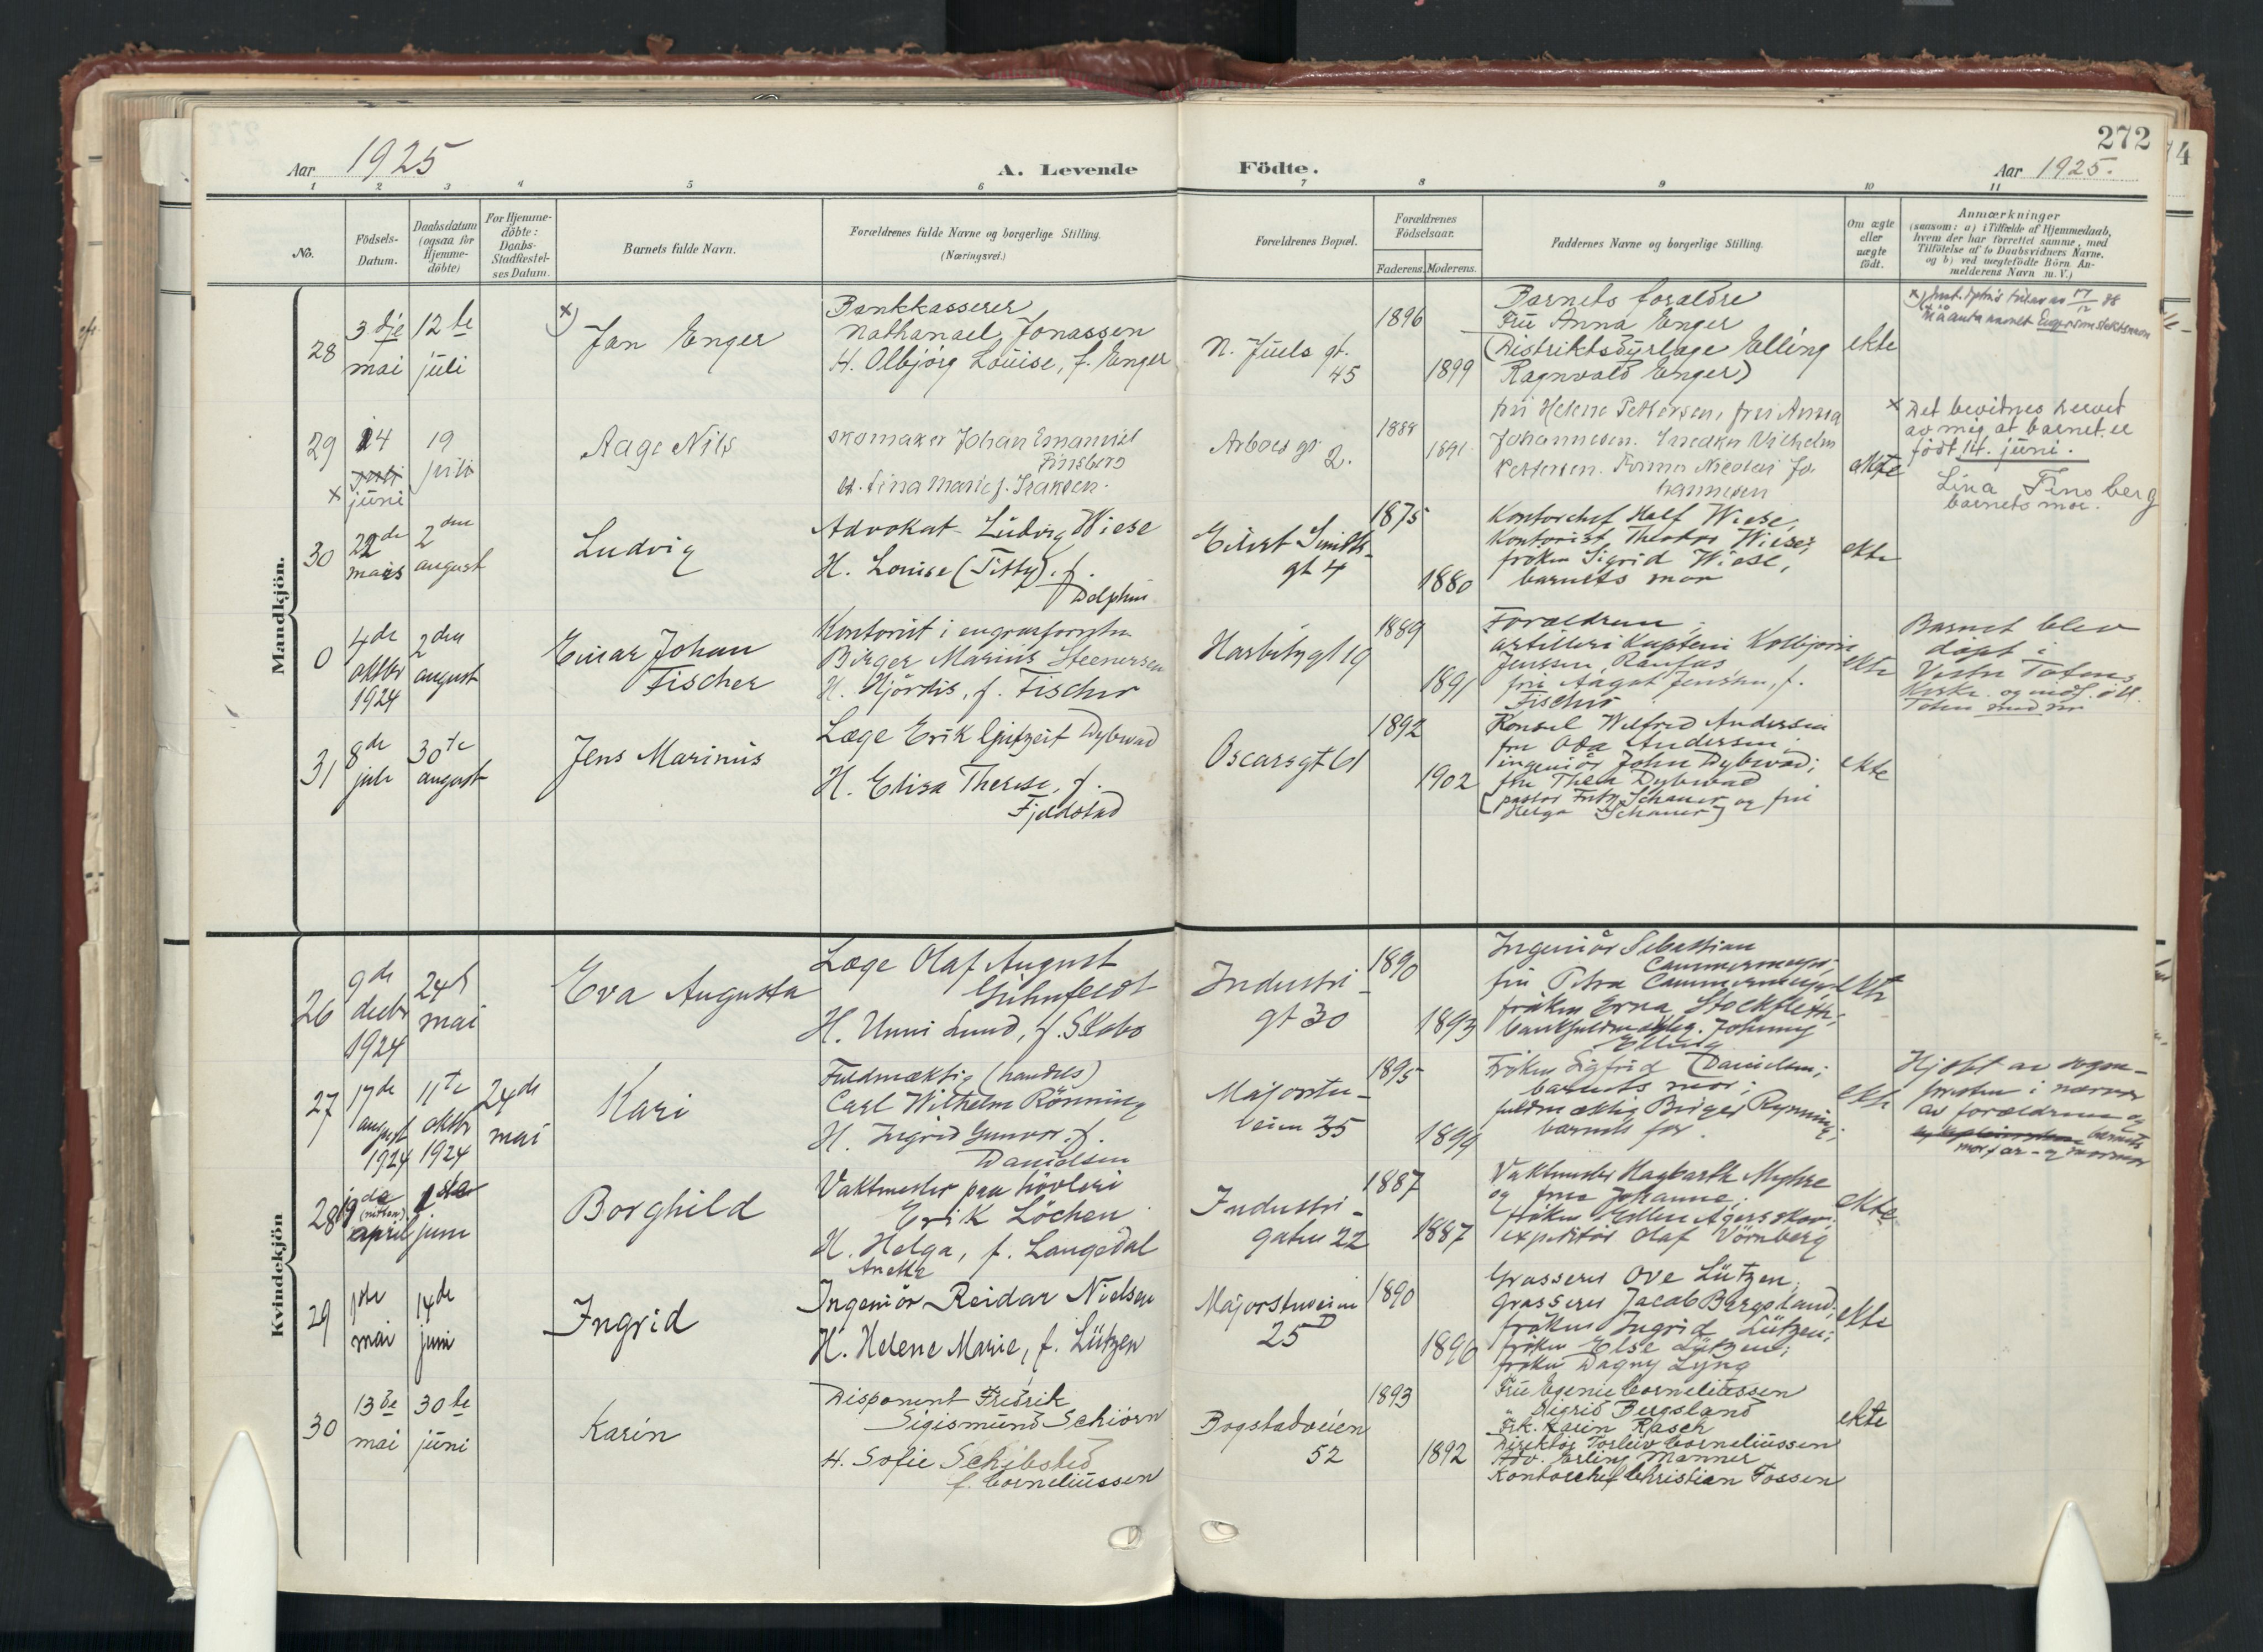 272
4
Aar 1925
A. Levende
Födte.
Aar 1925.
1 2 3 4 5 6 7 8 9 10 11
No.
Födsels-
Datum.
Daabsdatum
(ogsaa for
Hjemme-
döbte)
For Hjemme-
döbte:
Daabs-
Stadfæstel-
ses Datum.
Barnets fulde Navn.
Forældrenes fulde Navne og borgerlige Stilling.
(Næringsvei.)
Forældrenes Bopæl.
Forældrenes
Födselsaar.
Faderens. Moderens.
Faddernes Navne og borgerlige Stilling.
Om ægte
eller
uægte
födt.
Anmærkninger
(saasom: a) i Tilfælde af Hjemmedaab,
hvem der har forrettet samme, med
Tilföielse af to Daabsvidners Navne,
og b) ved uægtefödte Börn An-
melderens Navn m. V.)
Mandkjön.
28
3dje
mai
12te
juli
x)
Jan Enger
Bankkasserer
Nathanael Jonassen
H. Olbjörg Louise, f. Enger
N. Juels gt.
45
1896
1899
Barnets foraldre
Fru Anna Enger
(Distriktsdyrlæge Elling
Ragnvald Enger)
ekte
x)
anta navnet Enger som slektsnavn
29
14
juli
x juni
19
juli
Aage Nils
Skomaker Johan Emanuel
Finsberg
H. Lina Marie f. Isaksen.
Arbos gt
2.
1888
1891
fru Helene Pettersen, fru Anna
Johannesen. Snedker Vilhelm
Pettersen. Former Nicolai Jo-
hannesen
ekte
x Det bevitnes herved
av mig at barnet er
födt 14. juni.
Lina Finsberg
barnets mor.
30
22de
mars
2den
august
Ludvig
Advokat Ludvig Wiese
H. Louise (Titty). f.
Delphin
Eilert Sundts
gt 4
1875
1880
Kontorchef Half Wiese,
Kontorist Theodor Wiese;
fröken Sigrid Wiese,
barnets mor
ekte
0
4de
oktbr
1924
2den
august
Einar Johan
Fischer
Kontorist i engrosforretn.
Birger Marius Steenersen
H. Hjördis, f. Fischer
Harbitzgt 19
1889
1891
Forældrene
artilleri kaptein Kolbjörn
Jenssen, Raufos
fru Aagot Jenssen, f.
Fischer
ekte
Barnet blev
döpt i
Vestre Totens
Kirke og
Toten med nr
31
8de
juli
30te
august
Jens Marinus
Læge Erik Gutzeit Dybwad
H. Elisa Therese, f.
Fjeldstad
Oscarsgt 61
1892
1902
Konsul Wilfred Andersen
fru Oda Andersen;
ingeniör John Dybwad;
fru Thea Dybwad
[pastor Fritz Schauer og fru
Helga Schauer]
ekte
Kvindekjön
26
9de
decbr
1924
24de
mai
Eva Augusta
Læge Olaf August
Grühnfeldt
H. Unni Lund, f. Skabo
Industri-
gt 30
1890
1893
Ingeniör Sebastian
Cammermeyer;
fru Petra Cammermeyer
fröken Erna Stockfleth;
bankfuldmægtig. Johnny
Elling
ekte
27
17de
august
1924
11te
oktbr
1924
24de
mai
Kari
Fuldmæktig (handels)
Carl Wilhelm Rönning
H. Ingrid Gunvor. f.
Danielsen
Majorstu-
veien 35
1895
1899
Fröken Sigfrid Danielsen;
barnets mor;
fuldmæktig Birger Rynning;
barnets far.
ekte
Hjdöbt av sogne-
presten i nærvær
av forældrene og
barnets
morfar- og mormor
28
19de
(nitten)
april
1ste
juni
Borghild
Vaktmester paa hövleri
Erik Löchen
H. Helga, f. Langedal
Anette
Industri-
gaten 22
1887
1887
Vaktmester Hagbarth Myhre
og frue Johanne;
fröken Ellen Agersskow;
expeditör Olaf Vörnberg
ekte
29
1ste
mai
14de
juni
Ingrid
Ingeniör Reidar Nielsen
H. Helene Marie, f. Lützen
Majorstuveien
25D
1890
1896
Grosserer Ove Lützen,
grosserer Jacob Bergsland,
fröken Ingrid Lützen;
fröken Else Lützen;
fröken Dagny Lyng
ekte
30
13de
mai
30te
juni
Karin
Disponent Fredrik
Sigismund Schiörn
H. Sofie Schibsted
f. Corneliussen
Bogstadveien
52
1893
1892
Fru Egenie Corneliussen
" Digrid Bergsland
Frk. Karin Rasch
Direktör Torleiv Corneliussen
Adv. Erling Manner
Kontorchef Christian Fossen
ekte